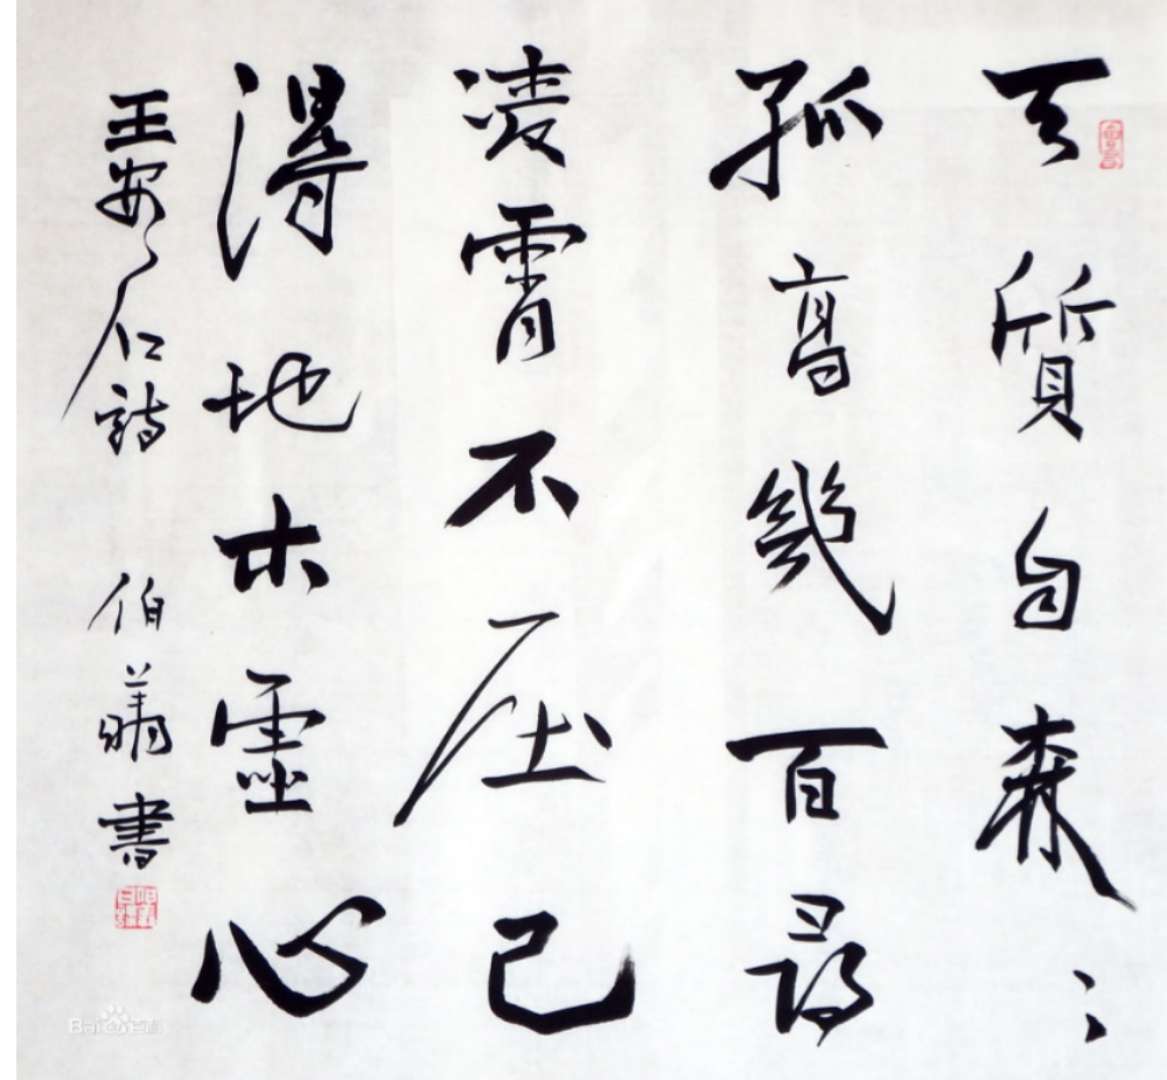 天質自森〻
孤高幾百尋
凌霄不屈己
得地本虚心
王安石詩 伯 書
Baidu百科